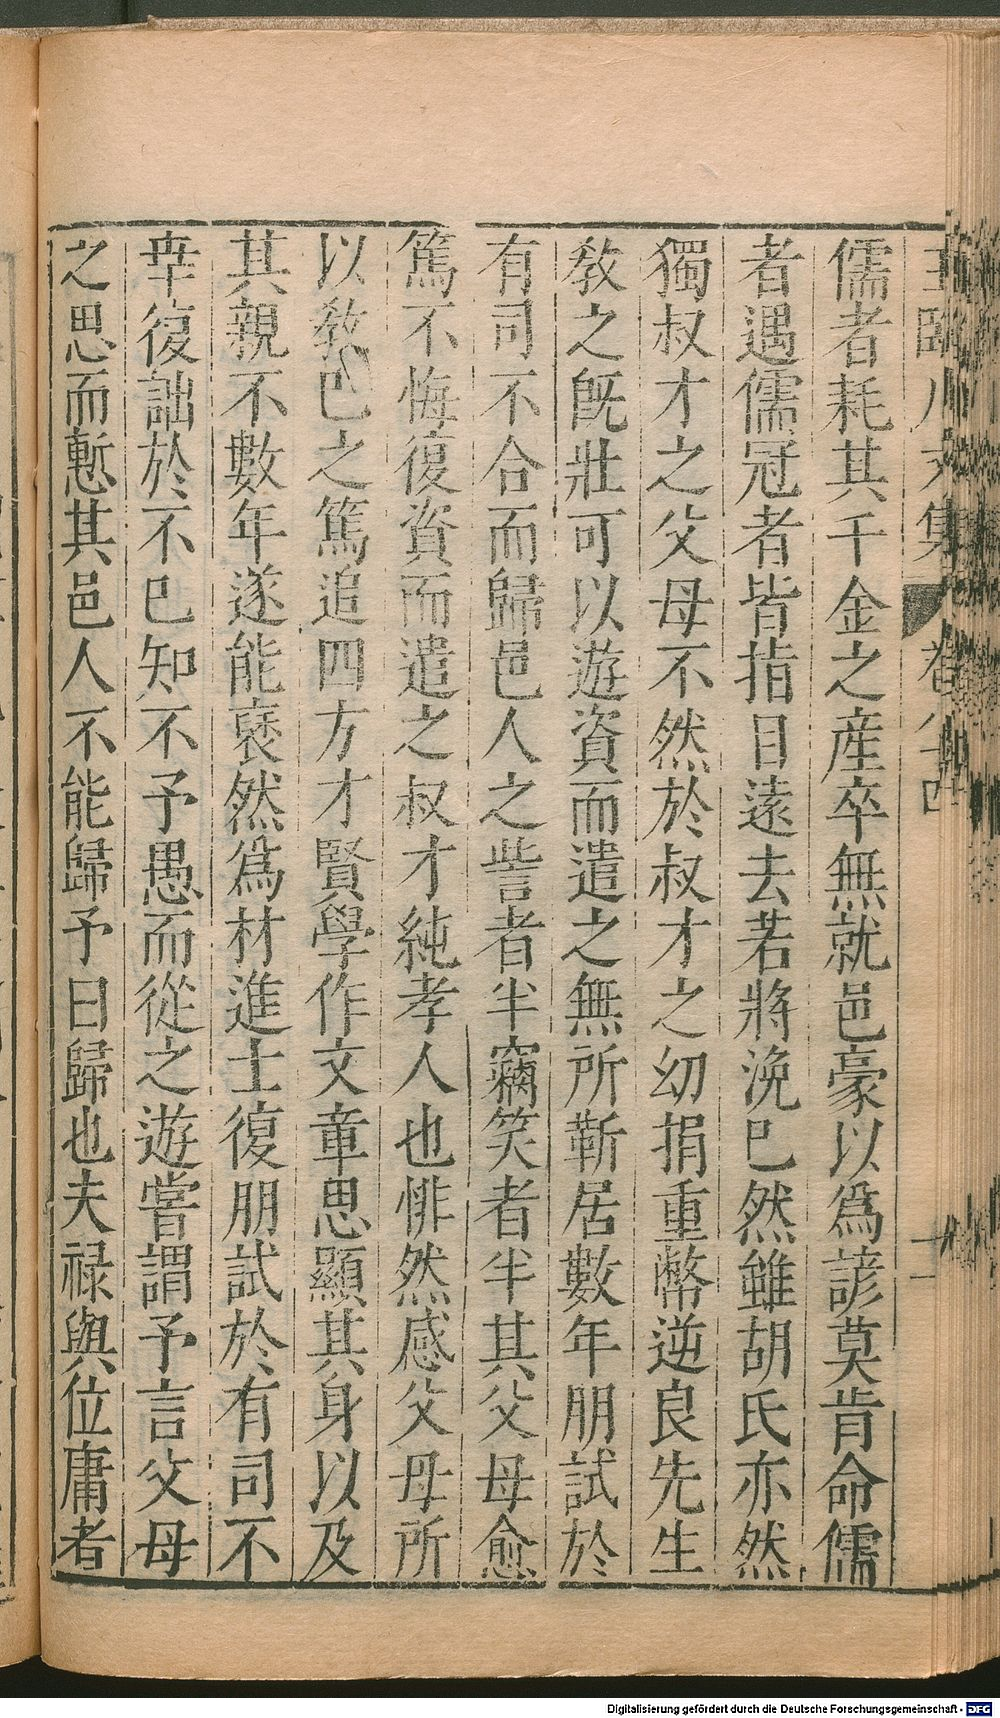 王臨川文集 卷八十四
儒者耗其千金之産卒無就邑豪以爲諺莫肯命儒
者遇儒冠者皆指目遠去若將浼巳然雖胡氏亦然
獨叔才之父母不然於叔才之幼捐重幣逆良先生
敎之旣壯可以遊資而遣之無所靳居數年朋試於
有司不合而歸邑人之訾者半竊笑者半其父母愈
篤不悔復資而遣之叔才純孝人也悱然感父母所
以敎巳之篤追四方才賢學作文章思顯其身以及
其親不數年遂能褎然爲材進士復朋試於有司不
幸復詘於不巳知不予愚而從之遊嘗謂予言父母
之思而慙其邑人不能歸予曰歸也夫禄與位庸者
Digitalisierung gefördert durch die Deutsche Forschungsgemeinschaft - DFG